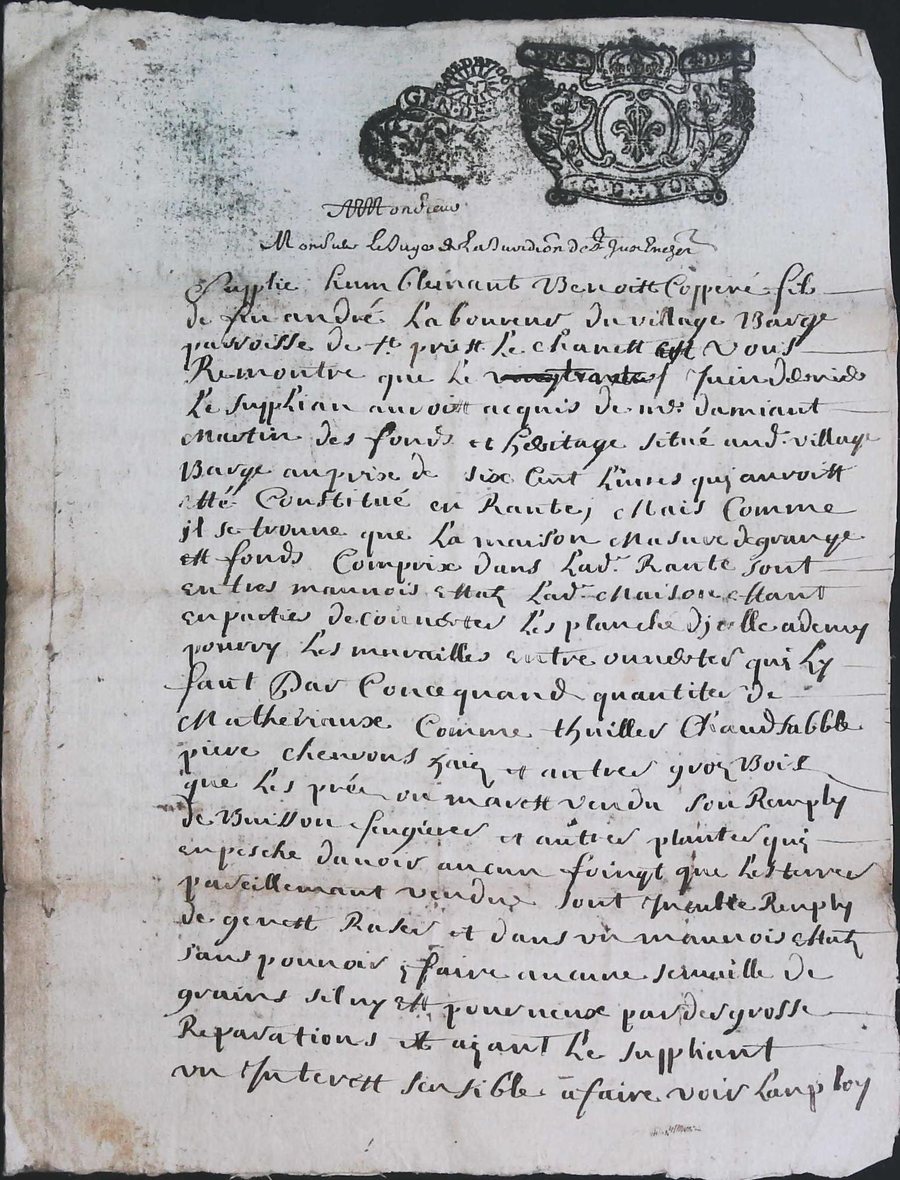 G. DE LYON
A Monsieur
Monsieur Le Juge de La Juridion de St Just
Supplie humblemant Benoistt Copperé fils
de feu andré Laboureur du village Barge
parroisse de St priestt Le chanett Vous
Remontre que Le Juin dernier
Le Supplian auroitt acquis de mre damiant
Martin des fonds et heritage situé aud. village
Barge au prix de six Cent Liures quj auroitt
etté Constitué en Rante, Mais Comme
jl se trouue que La maison Masure de grange
ett fonds Comprix dans Lad. Rante sont
en tres mauuois ettatz Lad. Maison ettant
en parties decouuerter Les planche djcelle a demy
pourry Les murailles entre ouuerter quj Ly
faut Par Concequand quantiter de
Matheriaux Comme thuiller Chaud sabble
piere cheurons haiz et autrer groz Bois
que Les préz ou marett vendu son Remply
de Buisson feugierer et autrer planter quj
enpesche dauoir aucun foingt que Les terrer
pareillemant vendue sont Jnculte Remply
de genett Raser et dans vn mauuois ettatz
sans pouuoir y faire aucune semaille de
grains sil ny ett pourueux par der grosse
Reparations ett ajant Le suppliant
vn Interett sensible a faire voir Lanploy